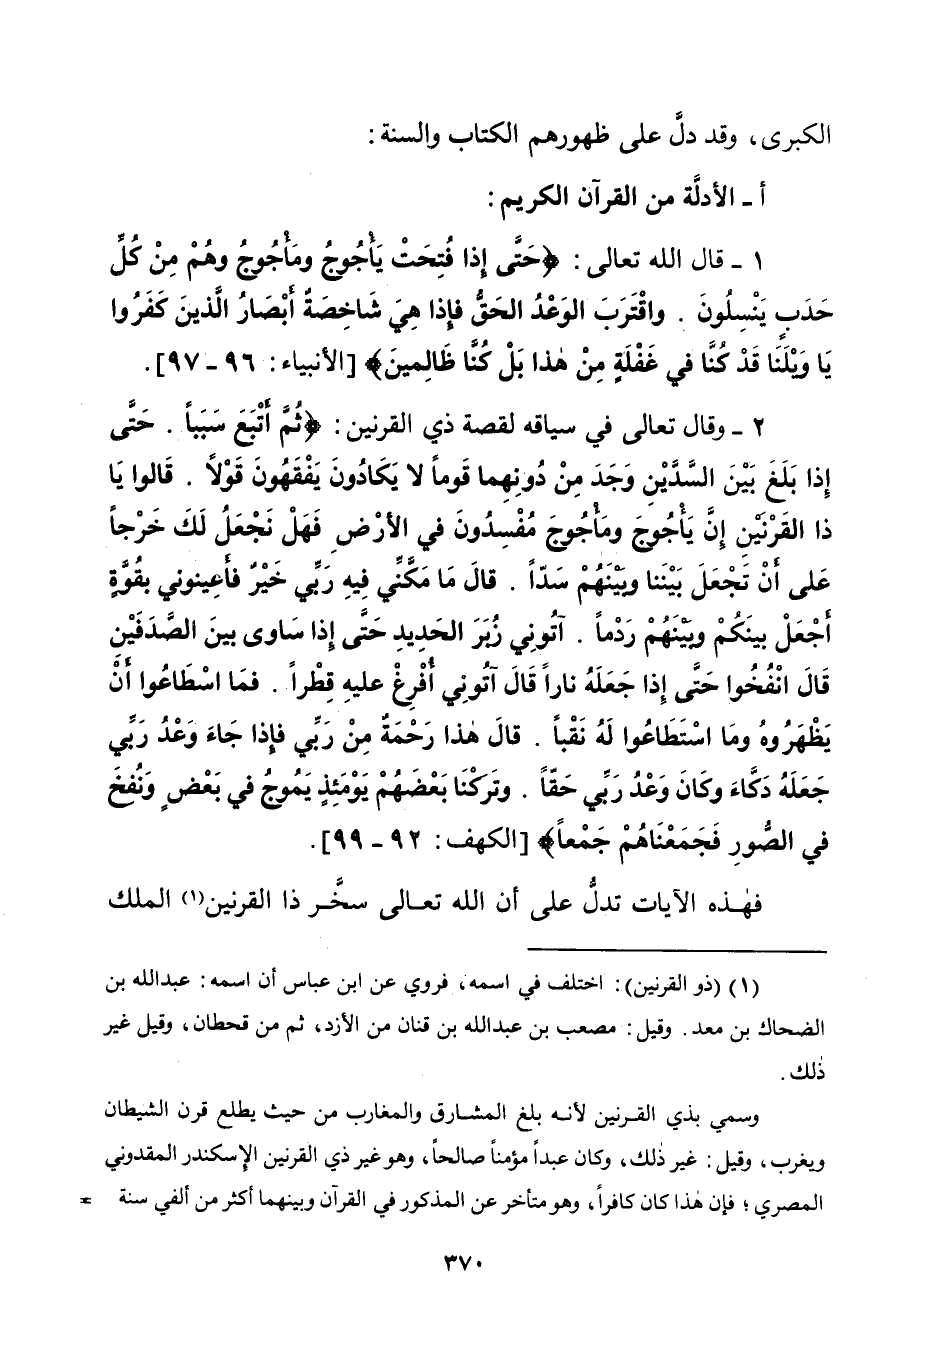 الكبرى، وقد دلَّ على ظهورهم الكتاب والسنة:
أ ـ الأدلَّة من القرآن الكريم:
١ ـ قال الله تعالى: ﴿حَتَّى إِذا فُتِحَتْ يَأْجُوجُ ومَأْجُوجُ وهُمْ مِنْ كُلِّ
حَدَبٍ يَنْسِلُونَ . واقْتَرَبَ الوَعْدُ الحَقُّ فإِذا هِيَ شَاخِصَةٌ أَبْصَارُ الَّذينَ كَفَرُوا
يَا وَيْلَنَا قَدْ كُنَّا في غَفْلَةٍ مِنْ هٰذا بَلْ كُنَّا ظَالِمينَ﴾ [الأنبياء: ٩٦ ـ ٩٧].
٢ ـ وقال تعالى في سياقه لقصة ذي القرنين: ﴿ثُمَّ أَتْبَعَ سَبَباً . حَتَّى
إِذا بَلَغَ بَيْنَ السَّدَّيْنِ وَجَدَ مِنْ دُونِهِما قَوماً لا يَكَادُونَ يَفْقَهُونَ قَوْلاً . قَالوا يَا
ذا القَرْنَيْنِ إِنَّ يَأْجُوجَ ومَأْجُوجَ مُفْسِدُونَ في الأرْضِ فَهَلْ نَجْعَلُ لَكَ خَرْجاً
عَلى أَنْ تَجْعَلَ بَيْنَنا وبَيْنَهُمْ سَدّاً . قالَ مَا مَكَّنِّي فيهِ رَبِّي خَيْرٌ فأَعِينوني بقُوَّةٍ
أَجْعَلْ بينَكُمْ وبَيْنَهُمْ رَدْماً . آتُونِي زُبَرَ الحَديدِ حَتَّى إِذا سَاوى بينَ الصَّدَفَيْنِ
قَالَ انْفُخُوا حَتَّى إِذا جَعَلَهُ ناراً قَالَ آتُوني أُفْرِغْ عليهِ قِطْراً . فمَا اسْطَاعُوا أَنْ
يَظْهَرُوهُ ومَا اسْتَطَاعُوا لَهُ نَقْباً . قالَ هٰذا رَحْمَةٌ مِنْ رَبِّي فإِذا جَاءَ وَعْدُ رَبِّي
جَعَلَهُ دَكَّاءَ وكَانَ وَعْدُ رَبِّي حَقّاً . وتَركْنَا بَعْضَهُمْ يَوْمَئِذٍ يَمُوجُ في بَعْضٍ ونُفِخَ
في الصُّورِ فَجَمَعْنَاهُمْ جَمْعاً﴾ [الكهف: ٩٢ ـ ٩٩].
فهٰذه الآيات تدلُّ على أن الله تعالى سخَّر ذا القرنين(١) الملك
(١) (ذو القرنين): اختلف في اسمه، فروي عن ابن عباس أن اسمه: عبدالله بن
الضحاك بن معد. وقيل: مصعب بن عبدالله بن قنان من الأزد، ثم من قحطان، وقيل غير
ذٰلك.
وسمي بذي القرنين لأنه بلغ المشارق والمغارب من حيث يطلع قرن الشيطان
ويغرب، وقيل: غير ذٰلك، وكان عبداً مؤمناً صالحاً، وهو غير ذي القرنين الإسكندر المقدوني
المصري؛ فإن هٰذا كان كافراً، وهو متأخر عن المذكور في القرآن وبينهما أكثر من ألفي سنة =
٣٧٠